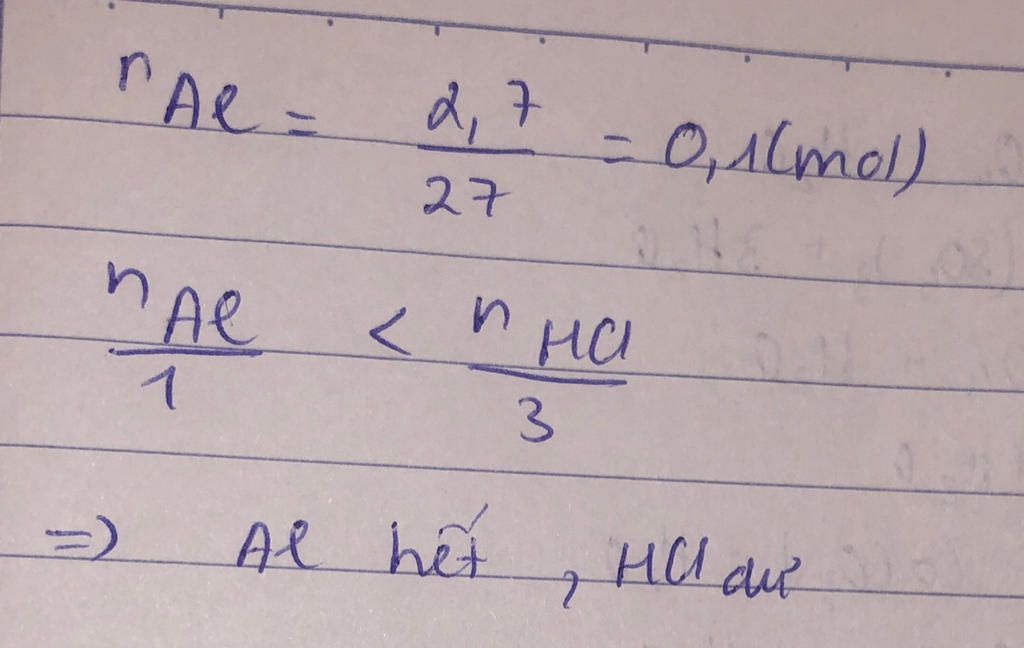 n Al = 2,7 / 27 = 0,1(mol)
n Al / 1 < n HCl / 3
=> Al hết, HCl dư